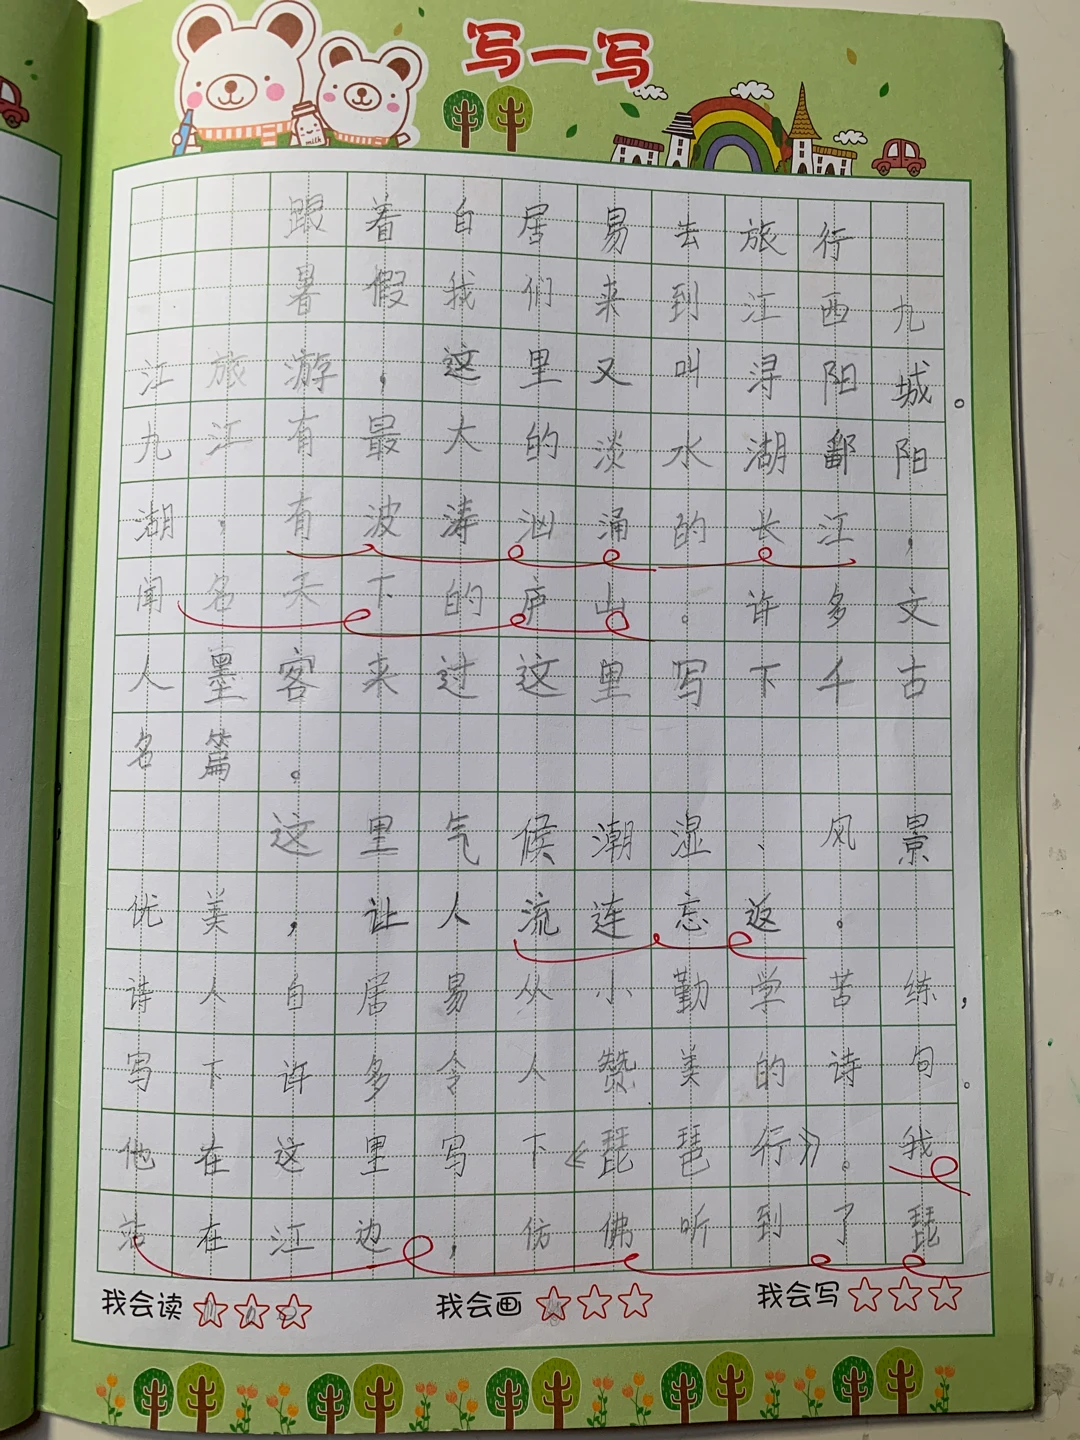 写一写
milk
跟着自居易去旅行
暑假我们来到江西九
江旅游，这里又叫浔阳城。
九江有最大的淡水湖鄱阳
湖，有波涛汹涌的长江，
闻名天下的庐山。许多文
人墨客来过这里写下千古
名篇。
这里气候潮湿、风景
优美，让人流连忘返。
诗人自居易从小勤学苦练，
写下许多令人赞美的诗句。
他在这里写下《琵琶行》。我
站在江边，仿佛听到了琵
我会读 我会画 我会写